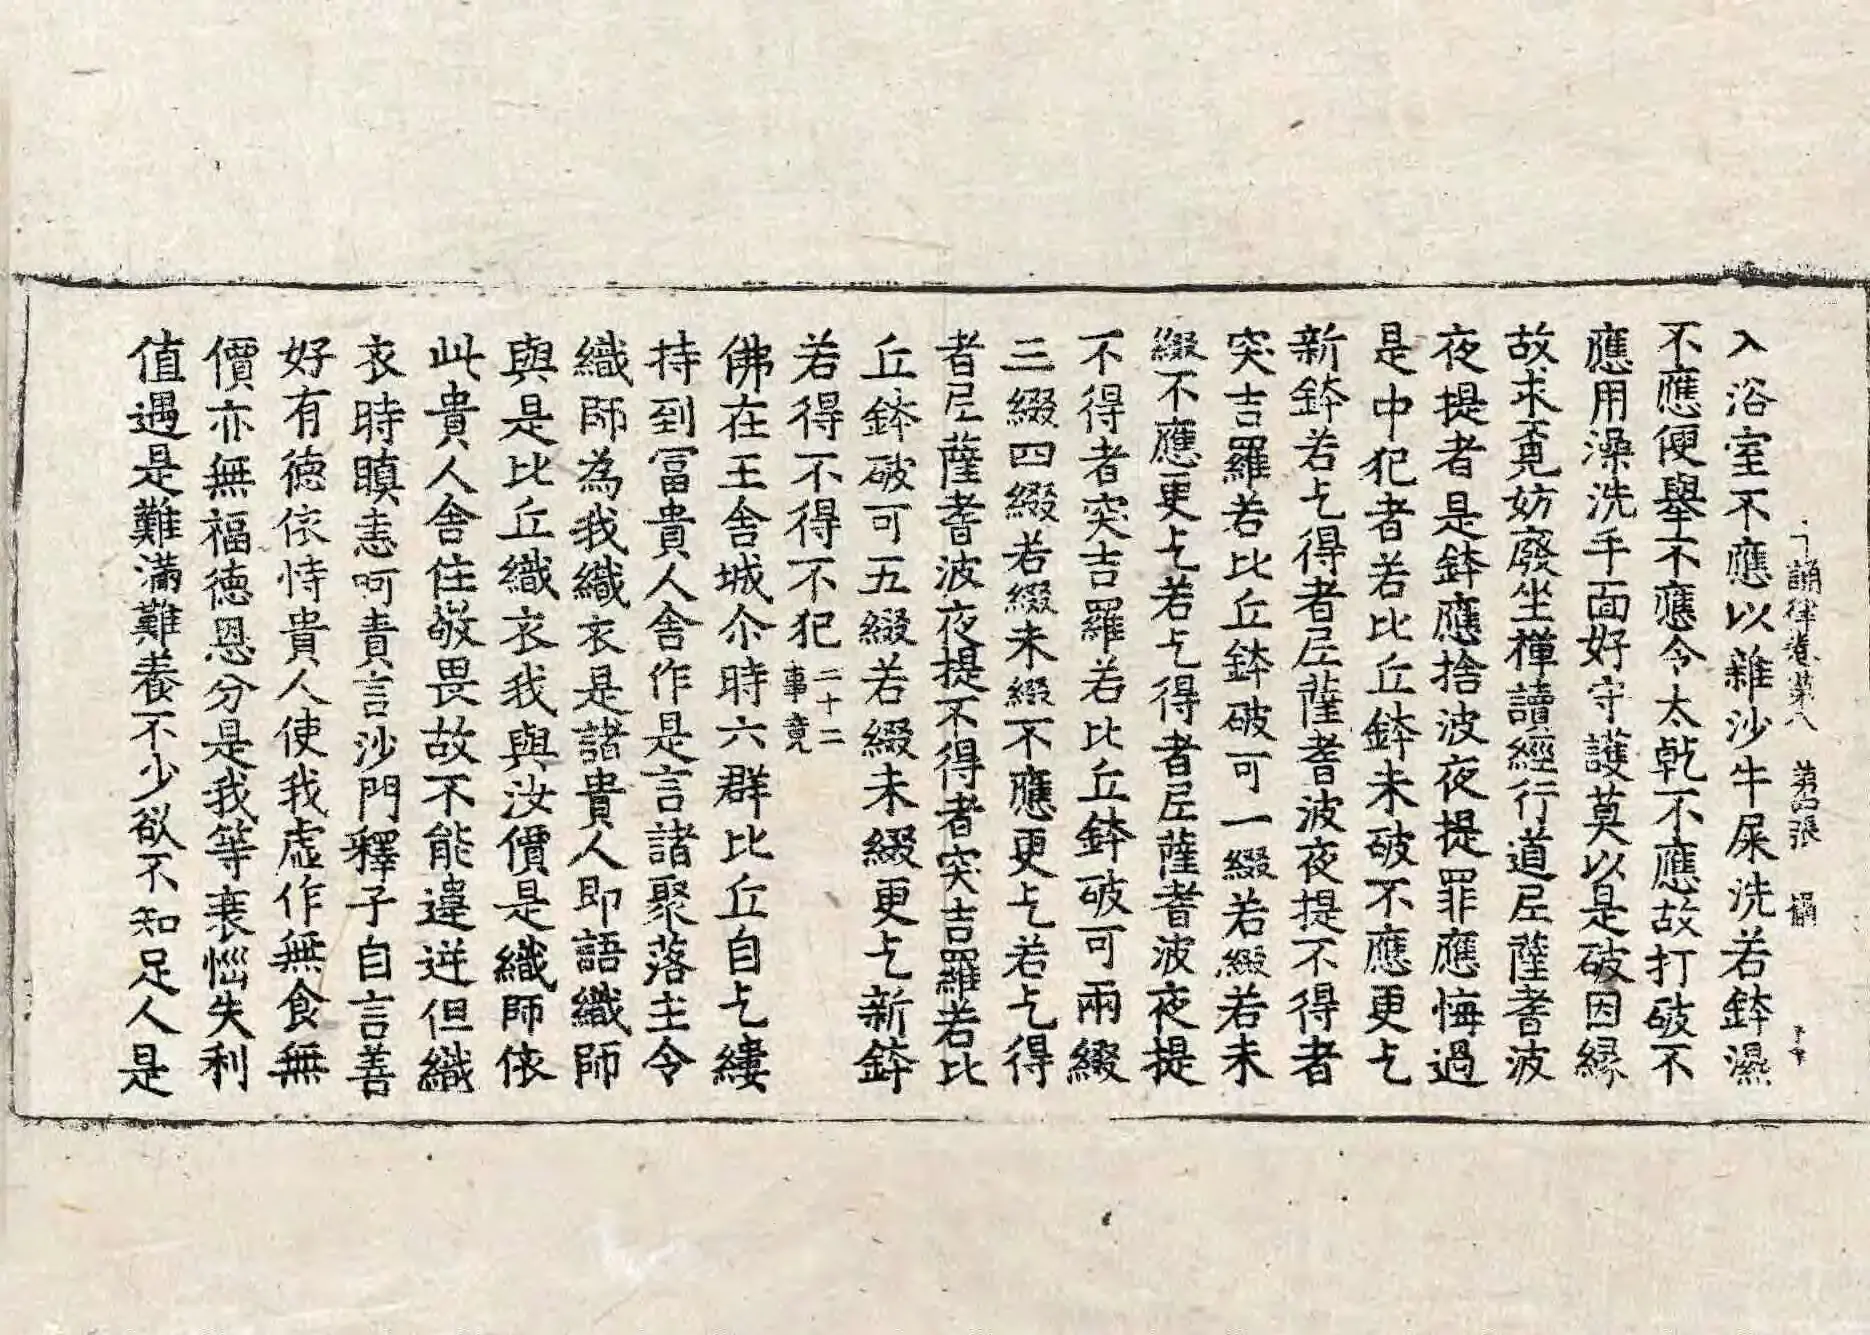 誦律卷第八 第四張
入浴室不應以雜沙牛屎洗若鉢濕
不應便舉不應令太乹不應故打破不
應用澡洗手面好守護莫以是破因縁
故求覔妨廢坐禪讀經行道尼薩耆波
夜提者是鉢應捨波夜提罪應悔過
是中犯者若比丘鉢未破不應更乞
新鉢若乞得者尼薩耆波夜提不得者
突吉羅若比丘鉢破可一綴若綴若未
綴不應更乞若乞得者尼薩耆波夜提
不得者突吉羅若比丘鉢破可兩綴
三綴四綴若綴未綴不應更乞若乞得
者尼薩耆波夜提不得者突吉羅若比
丘鉢破可五綴若綴未綴更乞新鉢
若得不得不犯二十二事竟
佛在王舍城尒時六群比丘自乞縷
持到冨貴人舍作是言諸聚落主令
織師為我織衣是諸貴人即語織師
與是比丘織衣我與汝價是織師依
此貴人舍住敬畏故不能違逆但織
衣時瞋恚呵責言沙門釋子自言善
好有德依恃貴人使我虛作無食無
價亦無福德恩分是我等衰惱失利
值遇是難滿難養不少欲不知足人是